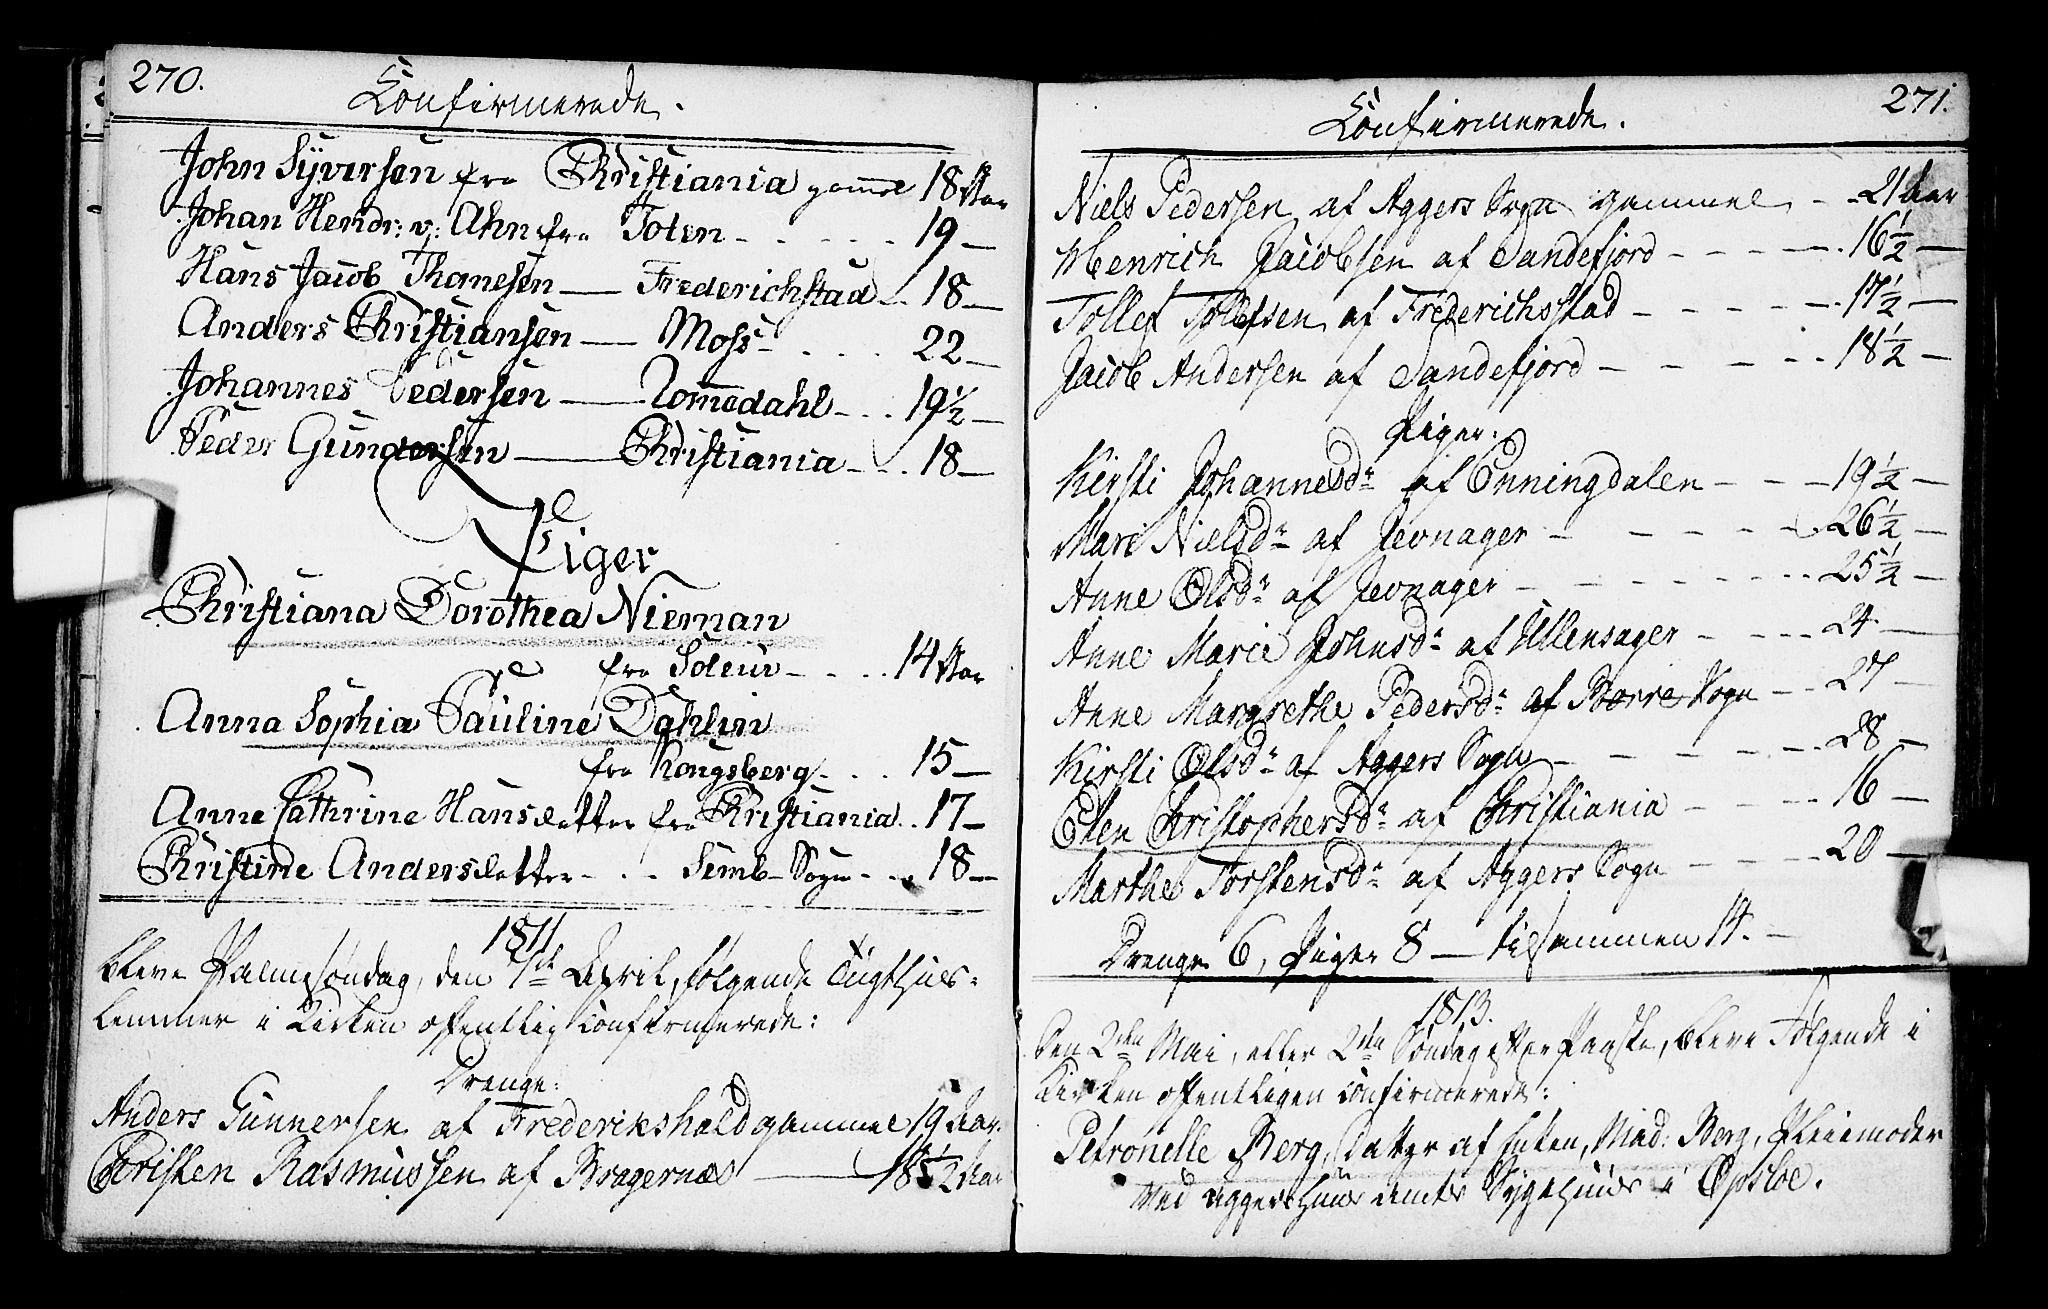 270.
Confirmerede.
John Syversen fra Christiania gammel 18 Aar
Johan Hendr: v: Ahn fra Toten - - - - - 19 —
Hans Jacob Thomesen — Frederichstad - 18 —
Anders Christiansen — Moss - - - - 22 —
Johannes Pedersen — Romedahl - - 19 1/2 —
Peder Gundersen — Christiania - - 18 —
Piger
Christiana Dorothea Nieman
fra Soleur - - - - 14 Aar
Anna Sophia Pauline Dahlin
fra Kongsberg - - - 15 —
Anne Cathrine Hansdatter fra Christiania - 17 —
Christine Andersdatter - - - Semb Sogn - - 18 —
1811
bleve Palmesøndag, den 7de April, følgende Tugthuus-
lemmer i Kirken offentlig confirmerede:
Drenge:
Anders Gunnersen af Frederikshald gammel 19 Aar.
Christen Rasmussen af Bragernæs — 18 1/2 Aar
271.
Confirmerede.
Niels Pedersen af Aggers Sogn gammel - - 21 Aar
Henrich Jacobsen af Sandefjord - - - - - 16 1/2 —
Tollef Tollefsen af Frederichsstad - - - - - 17 1/2 —
Jacob Andersen af Sandefjord - - - - - 18 1/2 —
Piger:
Kirsti Johannesdr af Enningdalen - - - 19 1/2 —
Mari Nielsdr af Jevnager - - - - - 26 1/2 —
Anne Olsdr af Jevnager - - - - - - - 25 1/2 —
Anne Marie Johnsdr af Ullensager - - - - 24 —
Anne Margrethe Pedersdr af Borre Sogn - - 27 —
Kirsti Olsdr af Aggers Sogn - - - - - - 28 —
Elen Christophersdr af Christiania - - - - 16 —
Marthe Torstensdr af Aggers Sogn - - - - 20 —
Drenge 6, Piger 8 — tilsammen 14. —
1813.
Den 2den Mai, eller 2den Søndag efter Paaske, bleve Følgende i
Kirken offentligen confirmerede:
Petronelle Berg, Datter af Enken, Mad: Berg, Pleiemoder
ved Aggershuus Amts Sygehuus i Opsloe.